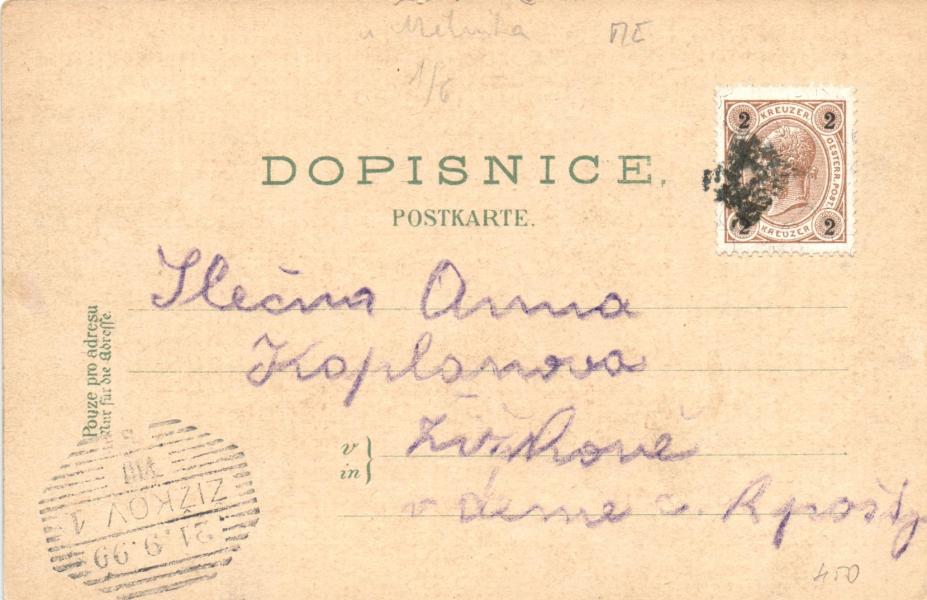 u Mělníka ME
1/6
DOPISNICE.
POSTKARTE.
2 KREUZER 2
OESTERR. POST.
2 KREUZER 2
Slečna Anna
Kaplanova
Pouze pro adresu
Nur für die Adresse.
v
in
Žižkově
v
ŽIŽKOV 1
21.9.99
450